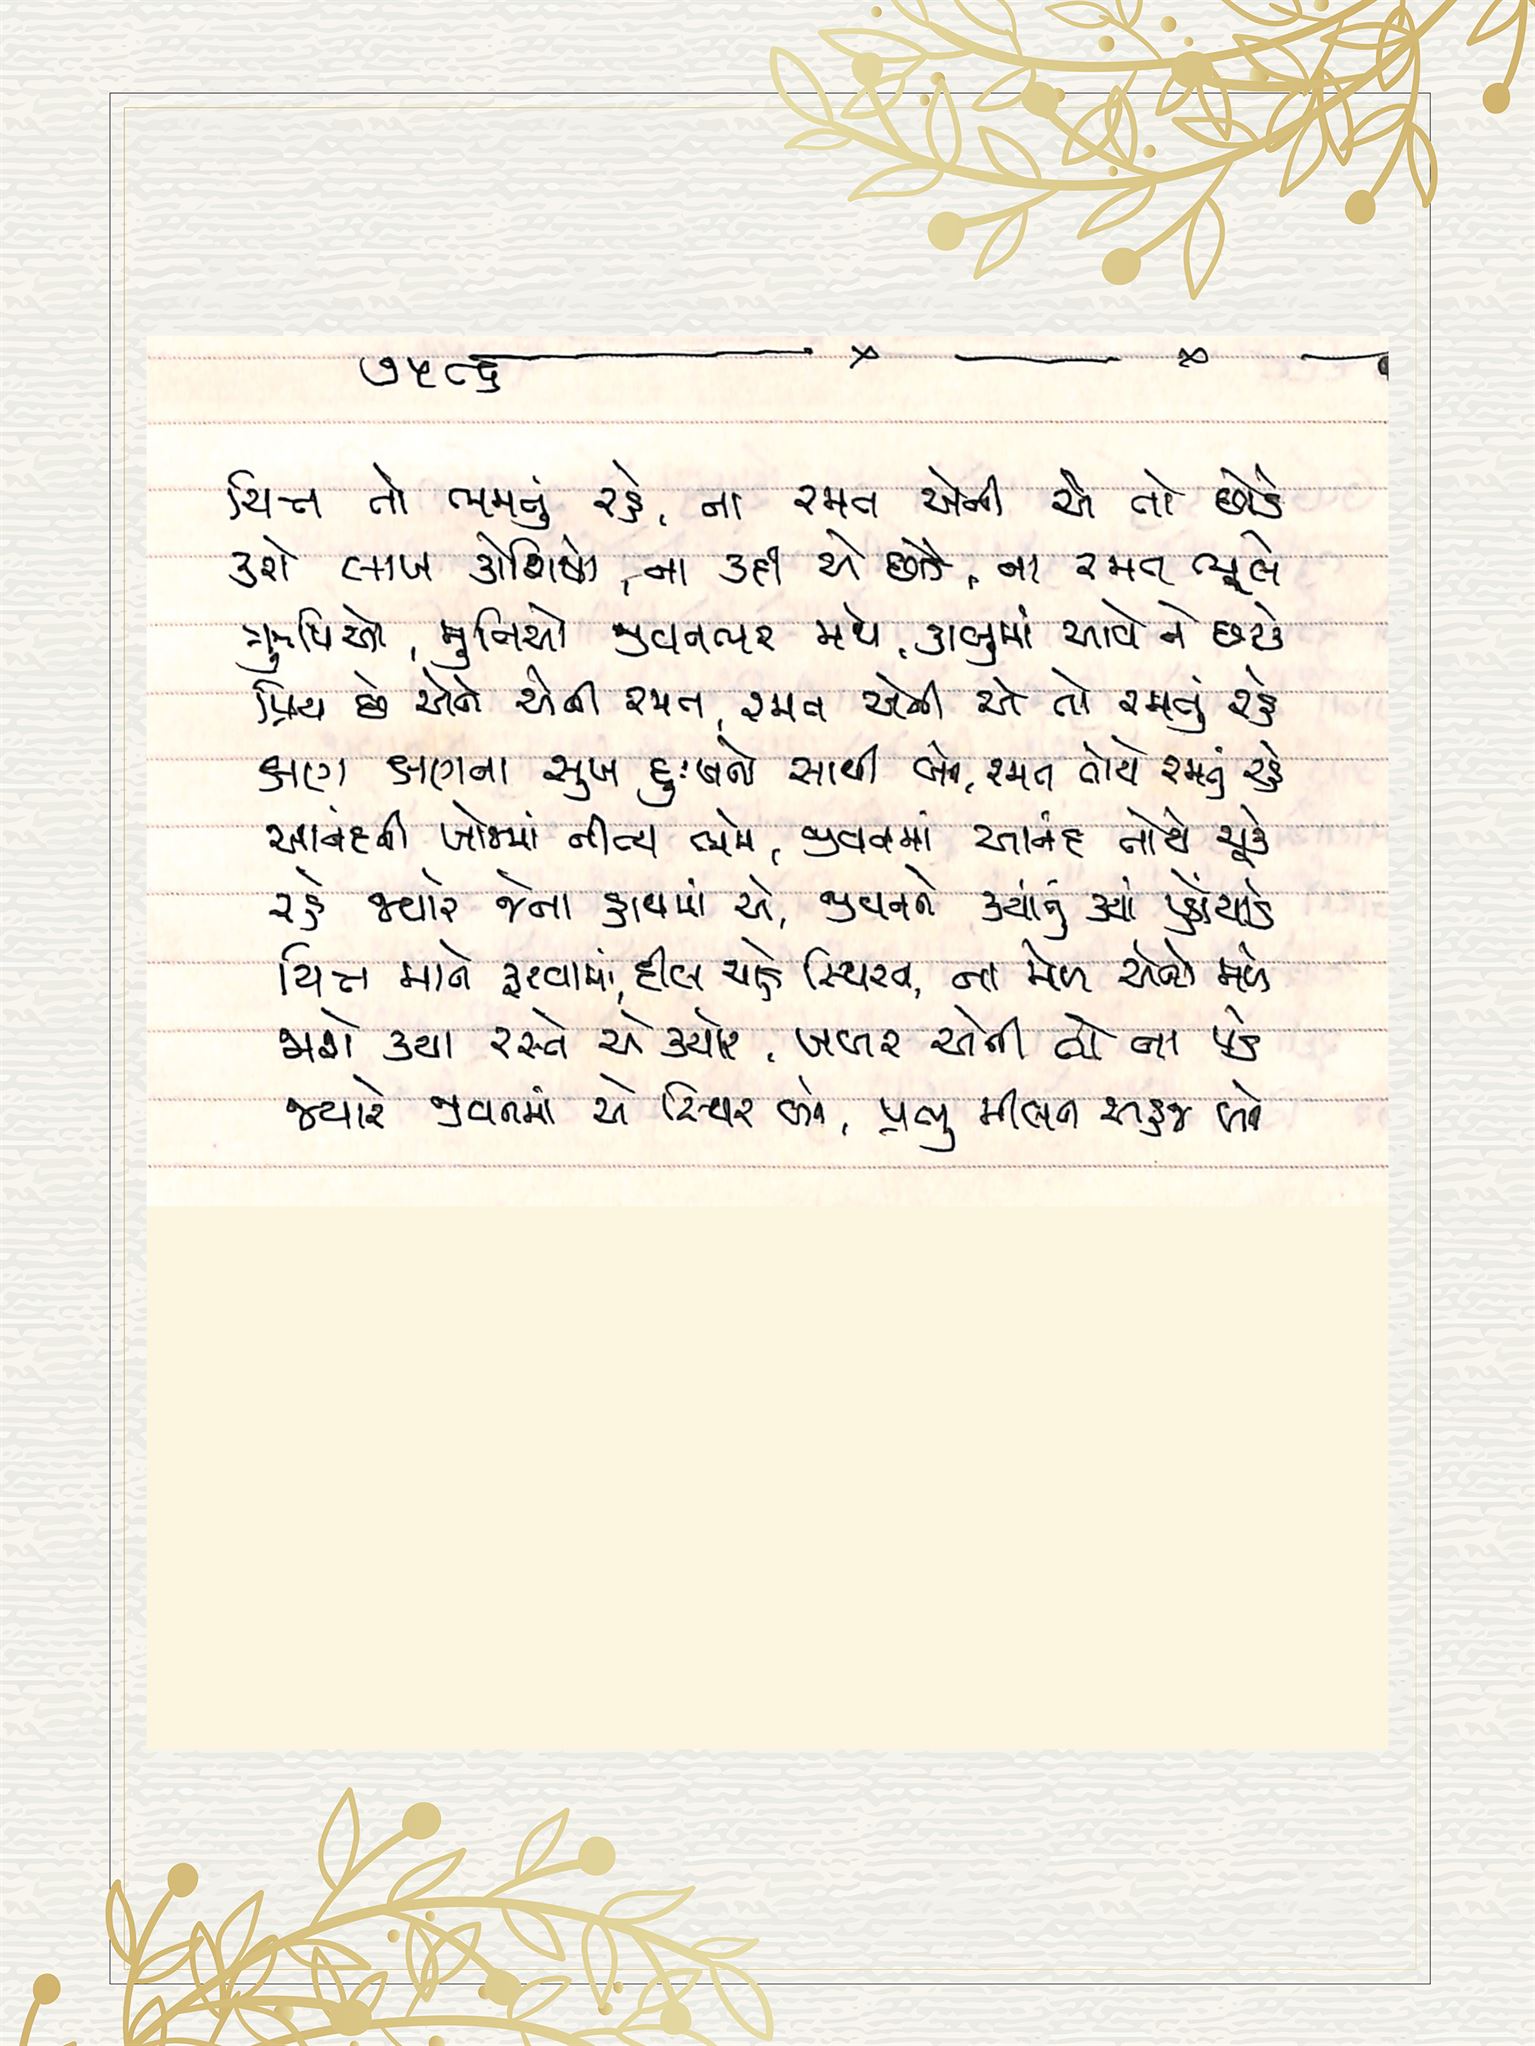 ૭૫૮૬
ચિત્ત તો ભમતું રહે, ના રમત એની એ તો છોડે
કરશે લાખ કોશિષો, ના કદી એ છોડે, ના રમત ભૂલે
ઋષિઓ, મુનિઓ જીવનભર મથે, કાબુમાં આવે ને છટકે
પ્રિય છે એને એની રમત, રમત એની એ તો રમતું રહે
ક્ષણ ક્ષણના સુખ દુઃખનો સાથી બને, રમત તોયે રમતું રહે
આનંદની ખોજમાં નીત્ય ભમે, જીવનમાં આનંદ તોયે ચૂકે
રહે જ્યારે જેના હાથમાં એ, જીવનને ક્યાંનું ક્યાં પહોંચાડે
ચિત્ત માને ફરવામાં, દીલ ચાહે સ્થિરતા, ના મેળ એનો મળે
જાશે કયા રસ્તે એ ક્યારે, ખબર એની તો ના પડે
જ્યારે જીવનમાં એ સ્થિર બને, પ્રભુ મીલન સહજ બને